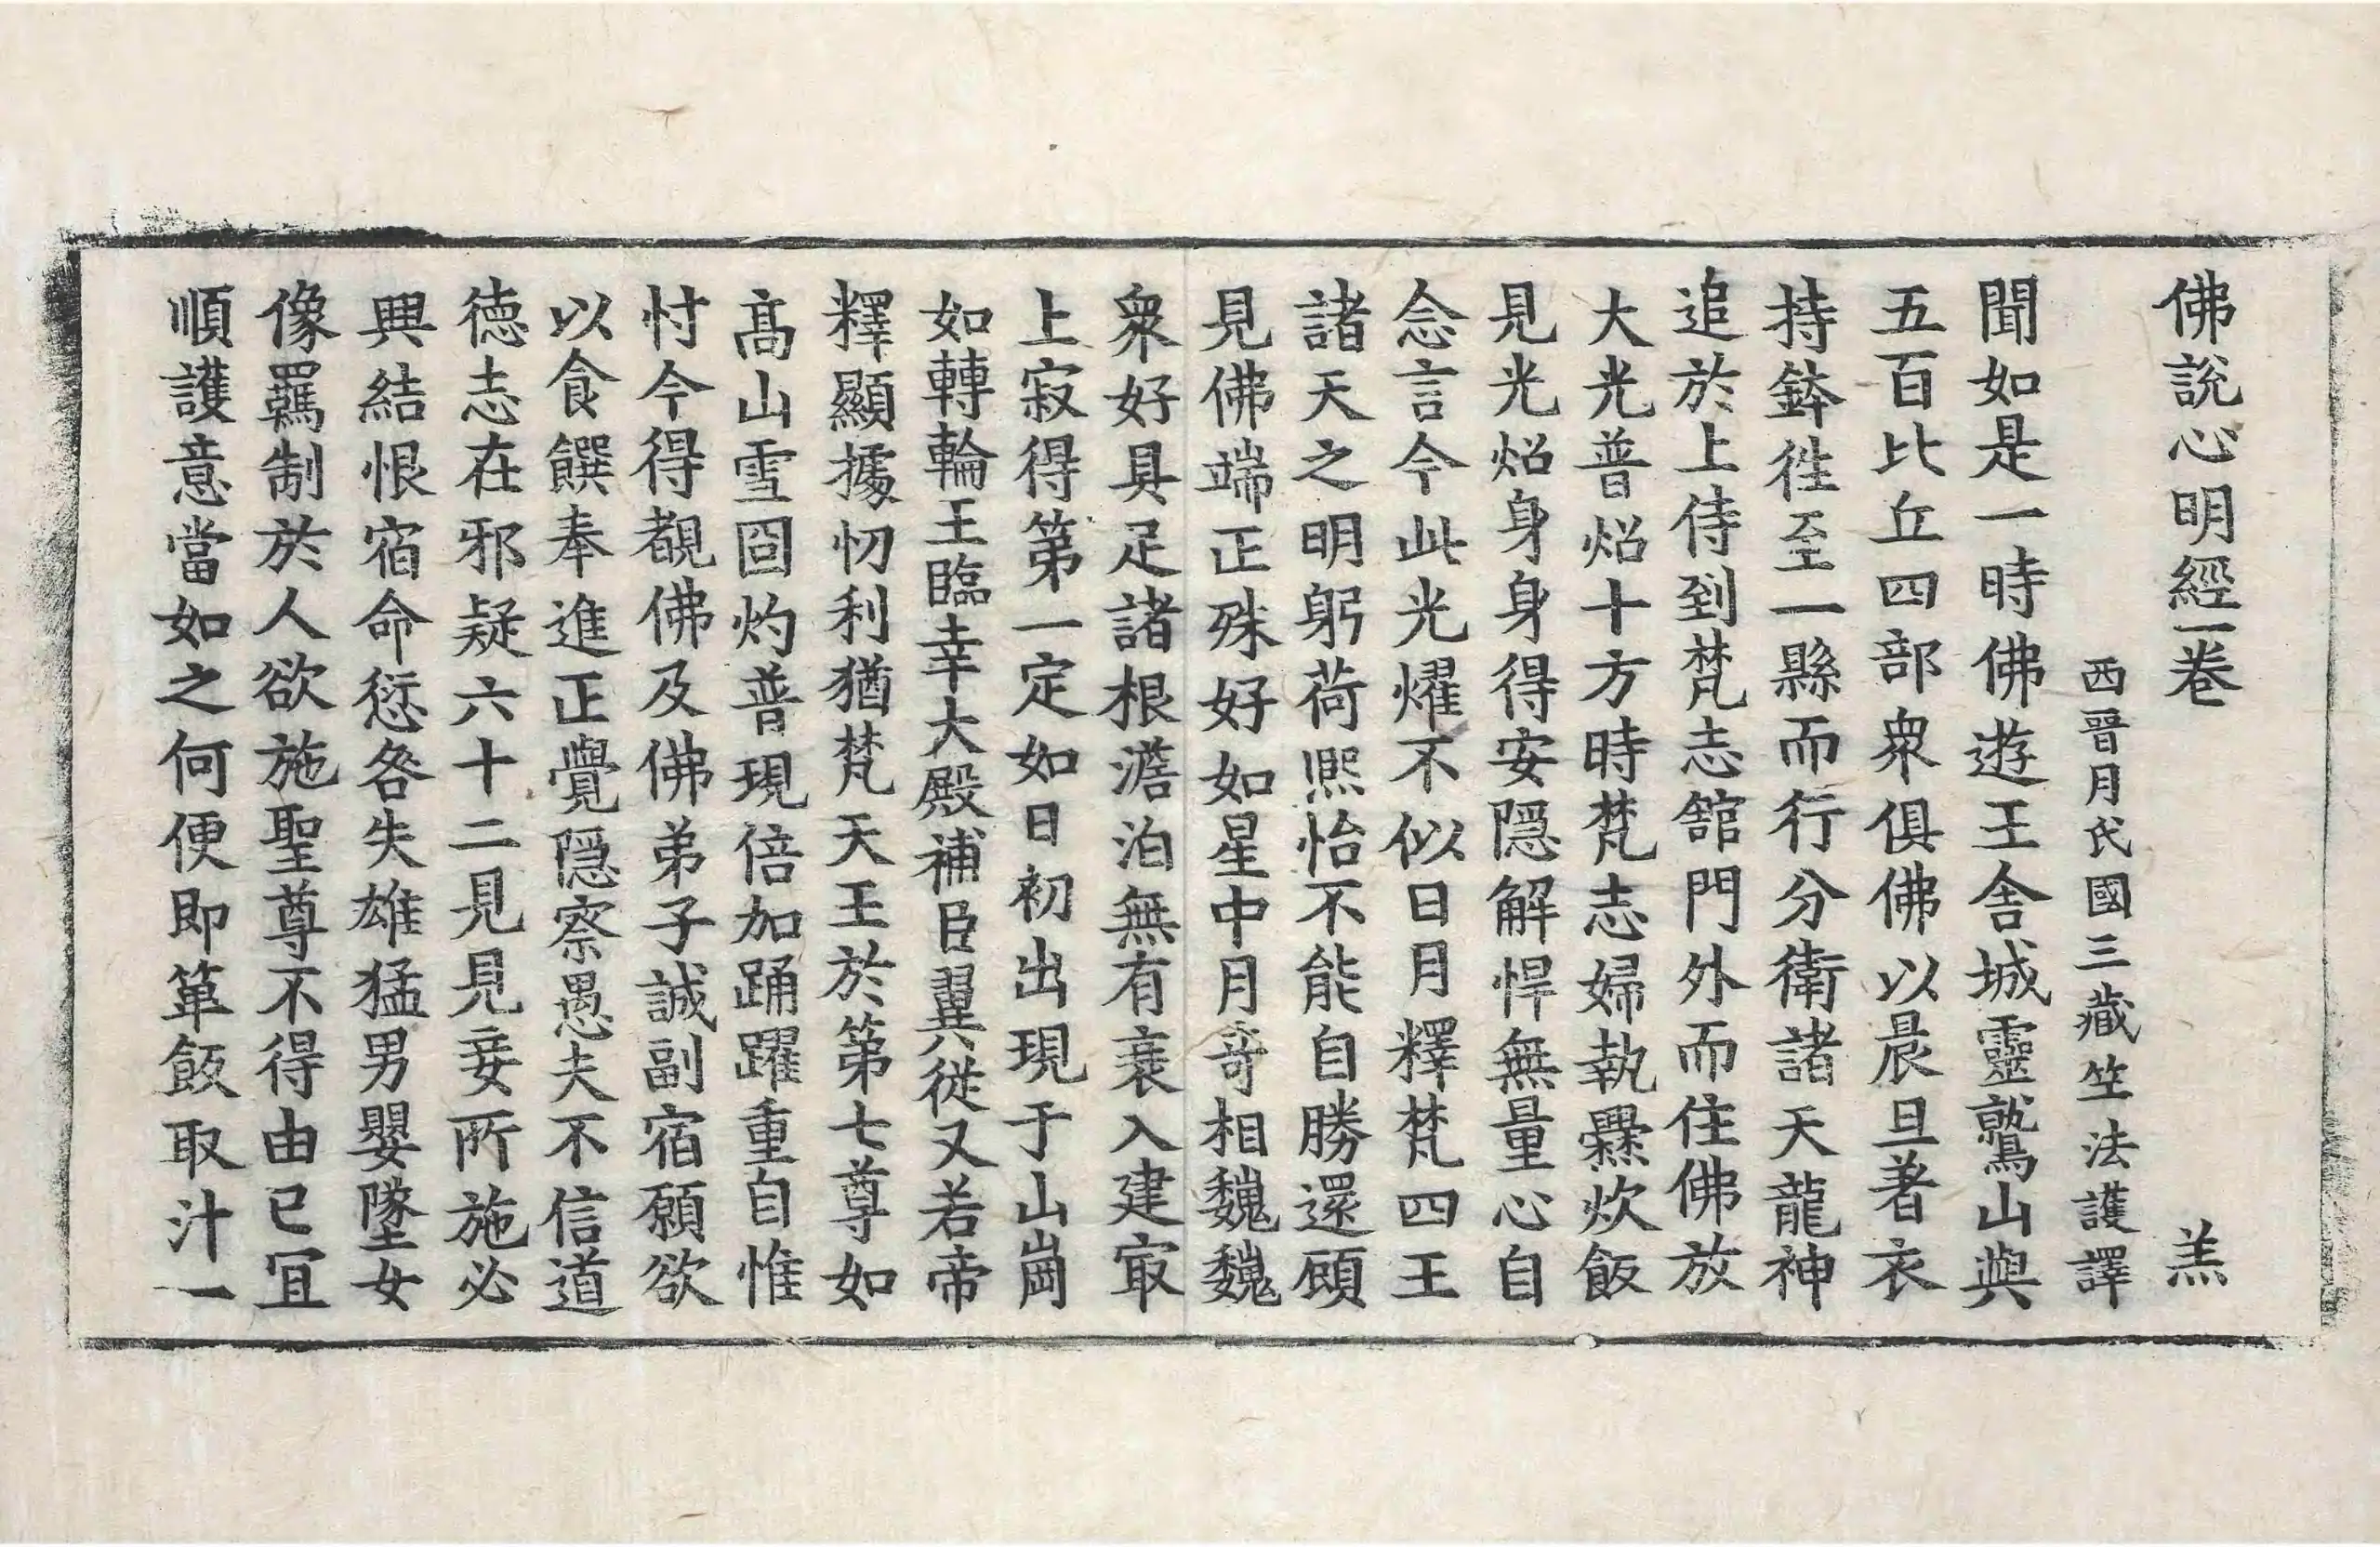 佛說心明經一卷 羔
西晉月氏國三藏竺法護譯
聞如是一時佛遊王舍城靈鷲山與
五百比丘四部衆俱佛以晨旦著衣
持鉢徃至一縣而行分衛諸天龍神
追於上侍到梵志舘門外而住佛放
大光普炤十方時梵志婦執爨炊飯
見光炤身身得安隱解悍無量心自
念言今此光燿不似日月釋梵四王
諸天之明躬荷熙怡不能自勝還顧
見佛端正殊好如星中月竒相巍巍
衆好具足諸根澹泊無有衰入建㝡
上寂得第一定如日初出現于山崗
如轉輪王臨幸大殿補臣翼從又若帝
釋顯據忉利猶梵天王於第七尊如
髙山雪囧灼普現倍加踊躍重自惟
忖今得覩佛及佛弟子誠副宿願欲
以食饌奉進正覺隱察愚夫不信道
徳志在邪疑六十二見見妾所施必
興結恨宿命愆咎失雄猛男嬰墜女
像羈制於人欲施聖尊不得由已冝
順護意當如之何便即箄飯取汁一